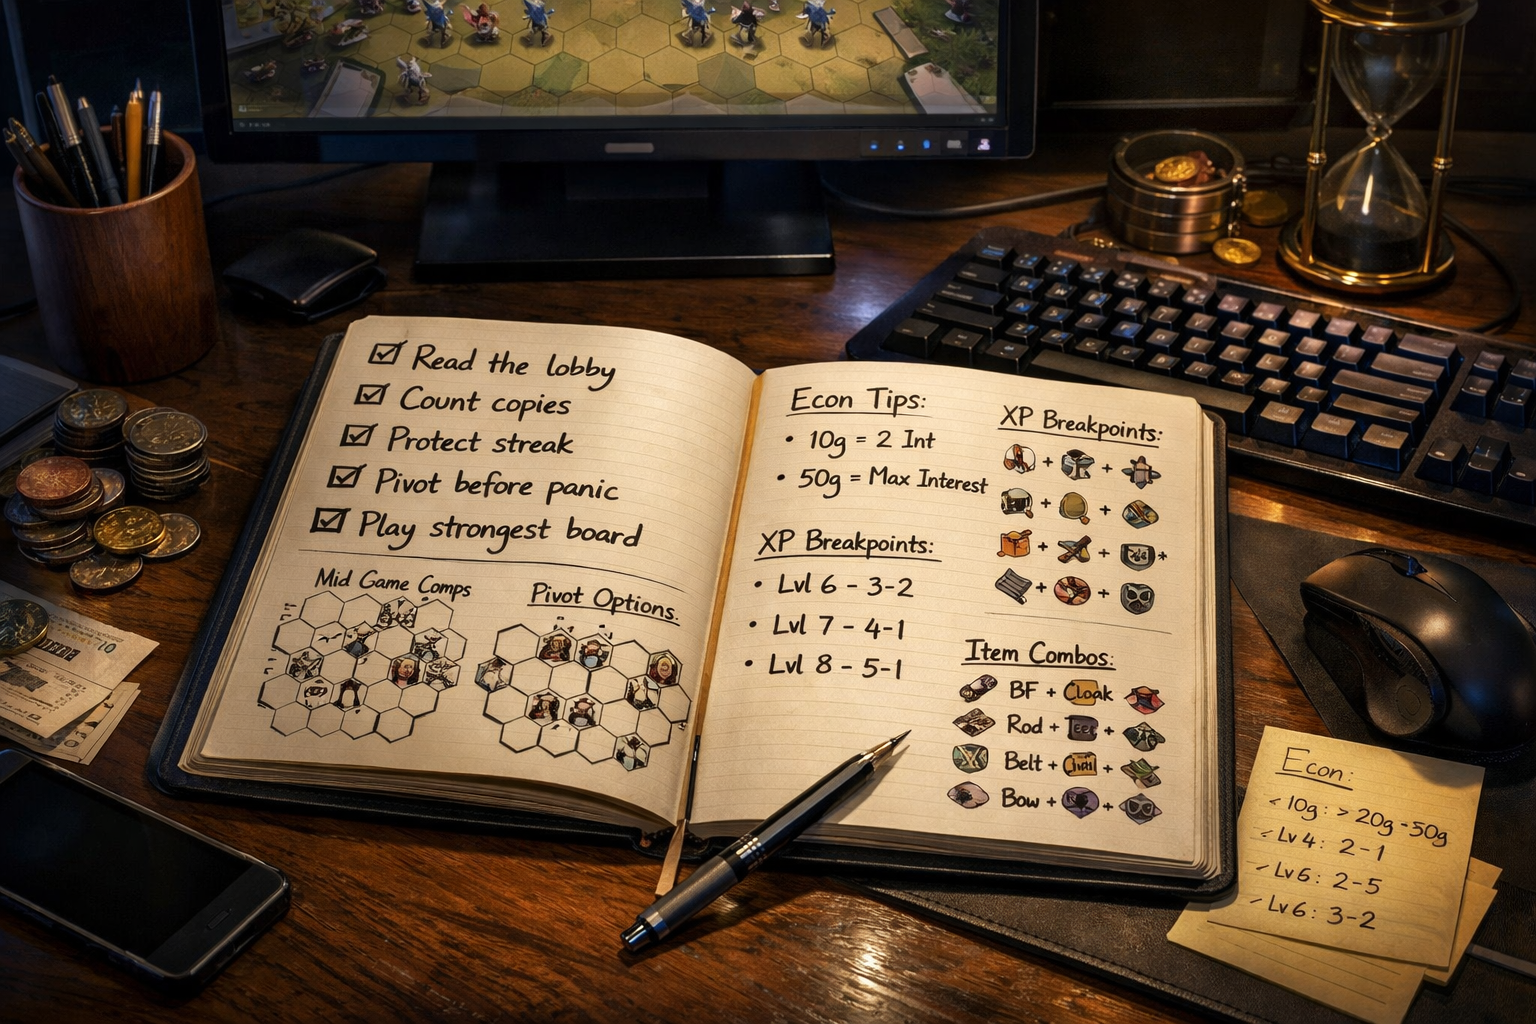 Read the lobby
Count copies
Protect streak
Pivot before panic
Play strongest board
Mid Game Comps
Pivot Options:
Econ Tips:
• 10g = 2 Int
• 50g = Max Interest
XP Breakpoints:
• Lvl 6 - 3-2
• Lvl 7 - 4-1
• Lvl 8 - 5-1
XP Breakpoints:
+ +
+ +
+ + +
+ +
Item Combos:
BF + Cloak
Rod + +
Belt + +
Bow + +
Econ:
< 10g: > 20g - 50g
Lv 4: 2-1
Lv 6: 2-5
Lv 6: 3-2